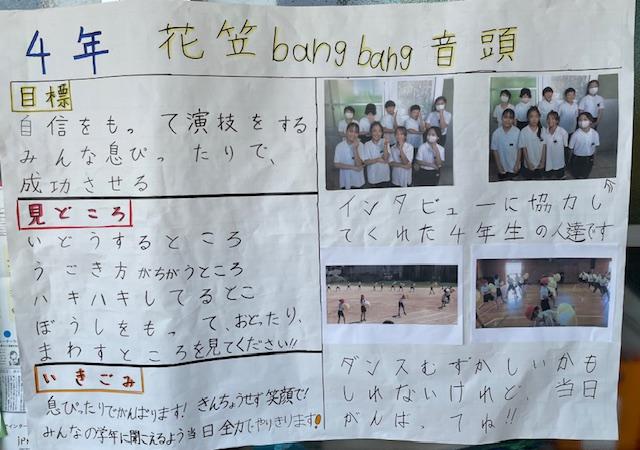 4年 花笠bangbang音頭
目標
自信をもって演技をする
みんな息ぴったりで、
成功させる
見どころ
いどうするところ
うごき方がちがうところ
ハキハキしてるとこ
ぼうしをもって、おどったり、
まわすところを見てください!!
いきごみ
息ぴったりでがんばります! きんちょうせず笑顔で!
みんなの学年に聞こえるよう当日全力でやりきります!
インタビューに協力し
てくれた4年生の人達です
ダンスむずかしいかも
しれないけれど、当日
がんばってね!!